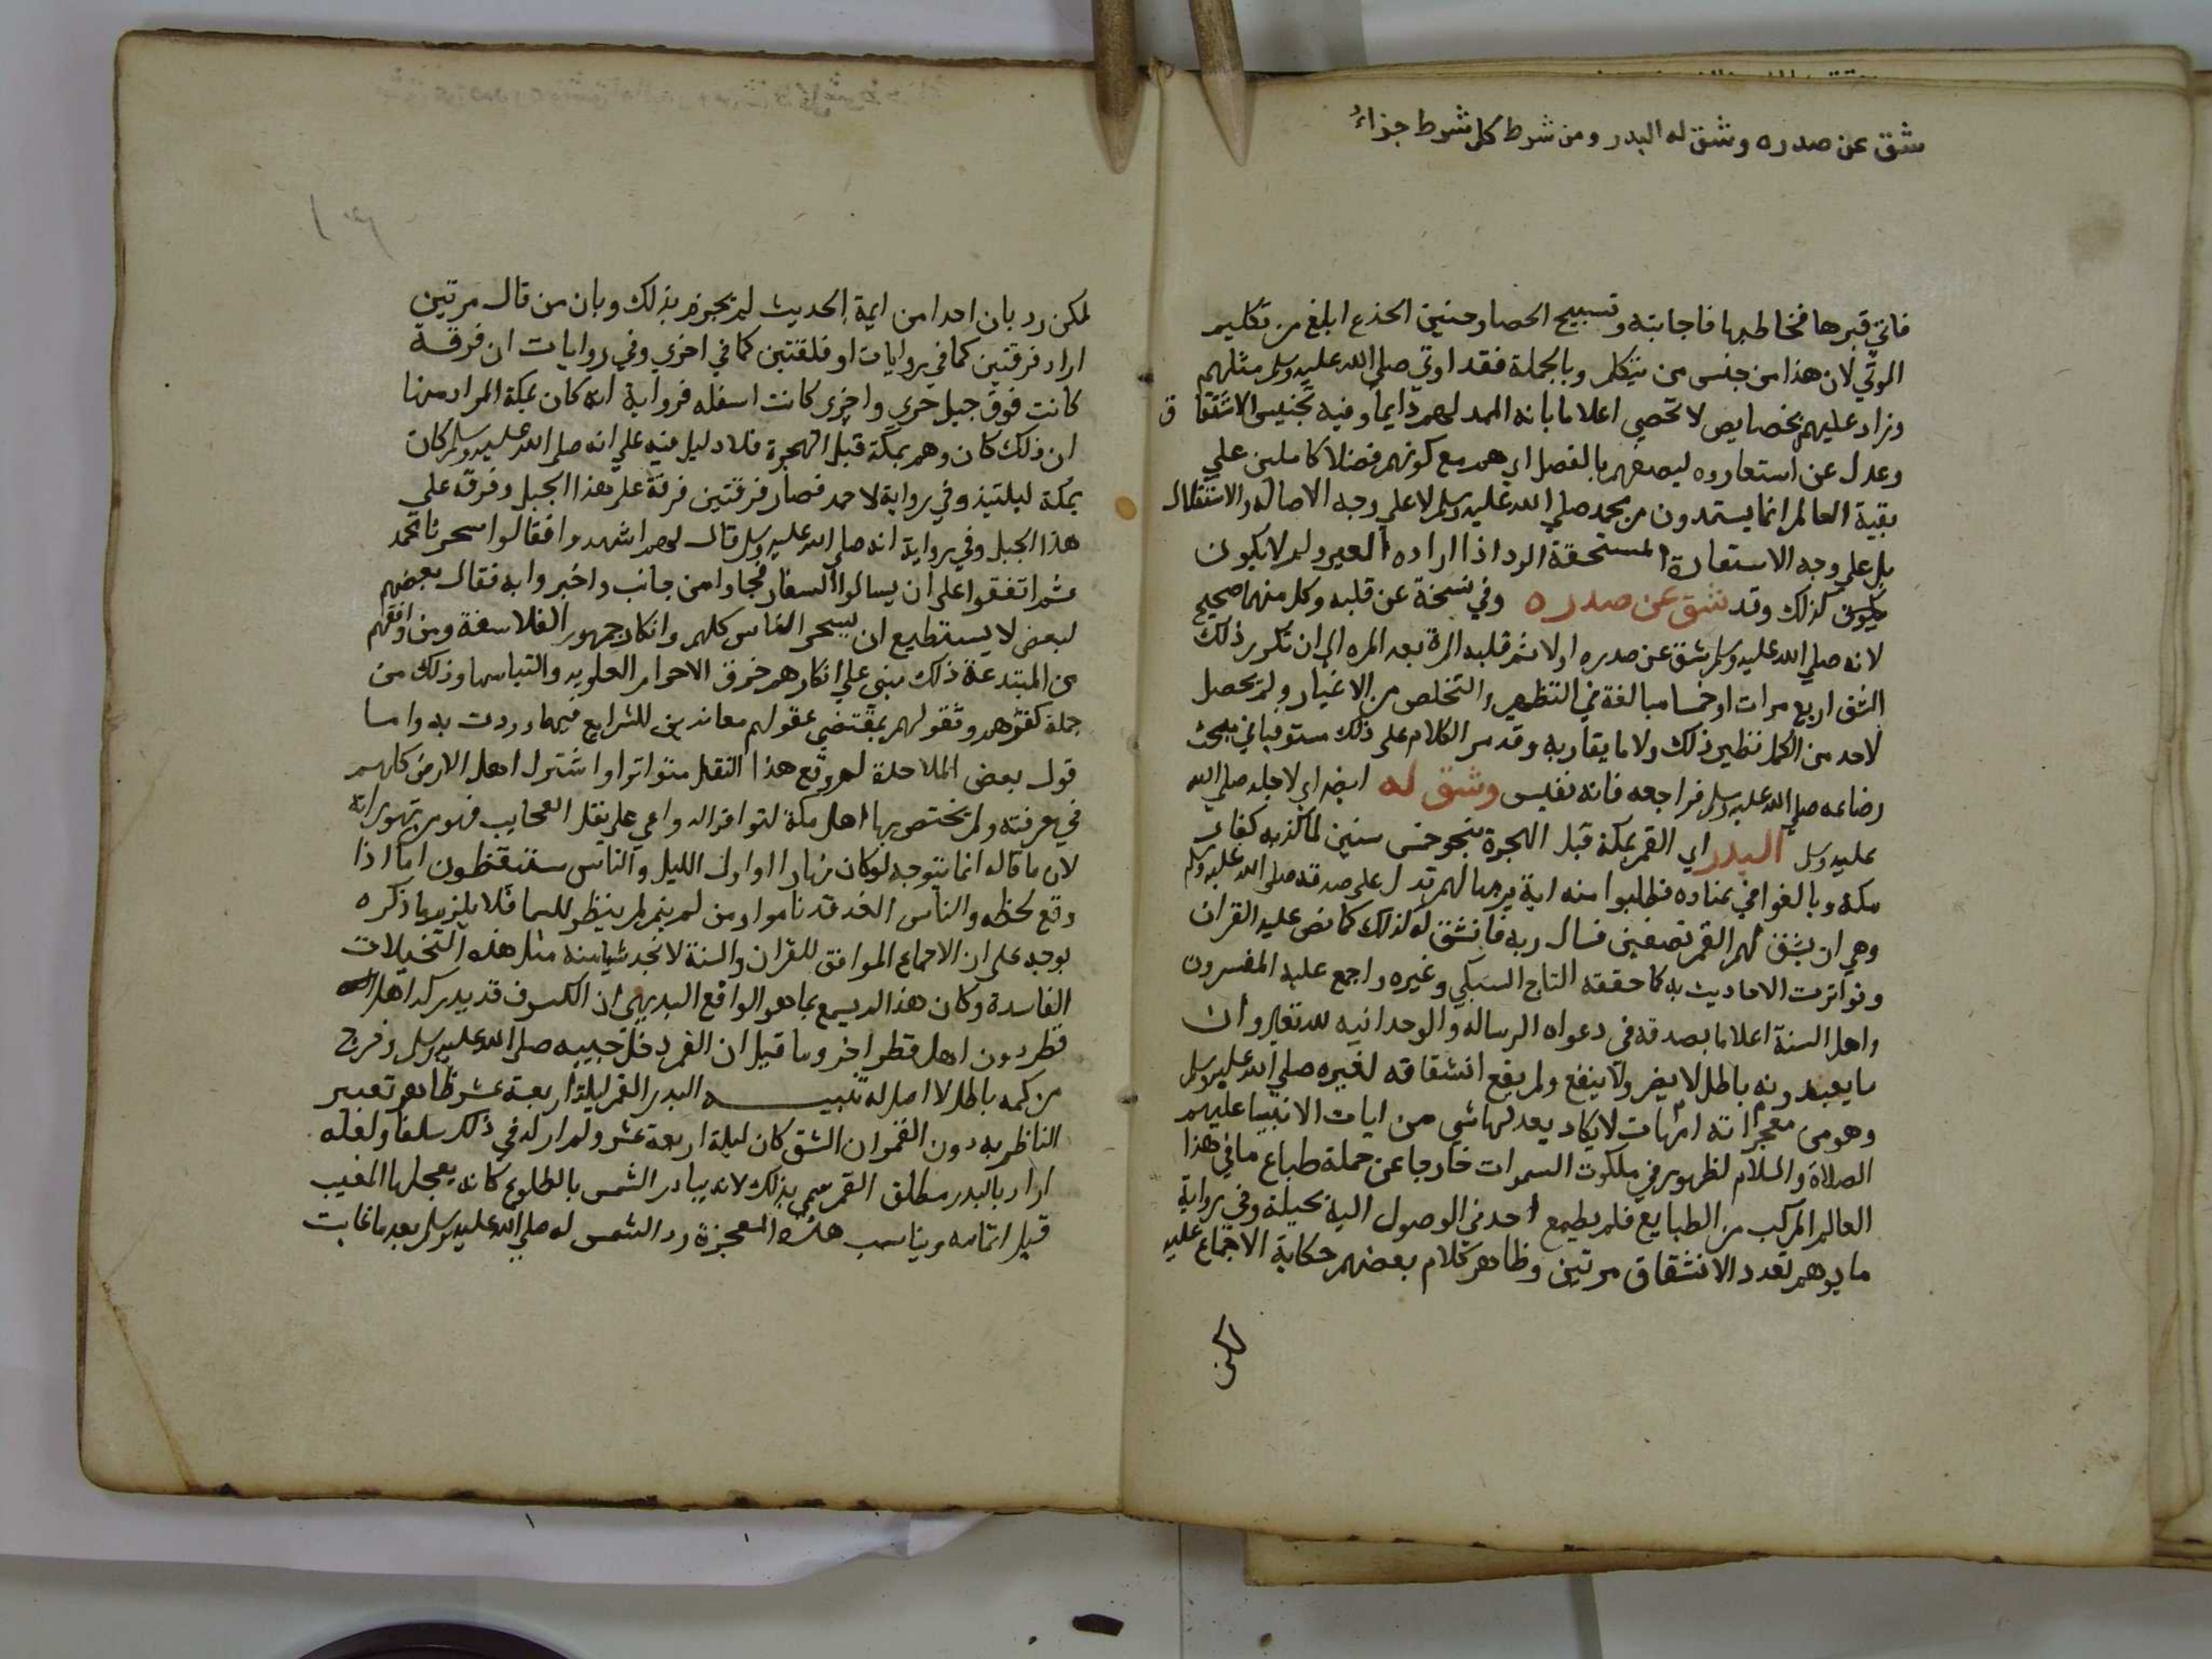 شق عن صدره وشق له البدر ومن شرط كل شرط جزاء
فاتي قبرها فخاطبها فاجابته وتسبيح الحصا وحنين الجذع ابلغ من تكليم
الموتي لان هذا من جنس من يتكلم وبالجملة فقد اوتي صلي الله عليه وسلم مثلهم
وزاد عليهم بخصايص لا تحصي اعلاما بانه الممد لهم دايما وفيه تجنيس الاشتقاق
وعدل عن استعاروه ليصفهم بالفضل اي هم مع كونهم فضلا كاملين علي
بقية العالم انما يستمدون من محمد صلي الله عليه وسلم لا علي وجه الاصاله والاستقلال
بل علي وجه الاستعارة المستحقة الرد اذا اراده المعير ولم لا يكون
يكون كذلك وقد شق عن صدره وفي نسخة عن قلبه وكل منهما صحيح
لانه صلي الله عليه وسلم شق عن صدره اولا ثم قلبه المرة بعد المره الي ان تكرر ذلك
الشق اربع مرات او خمسا مبالغة في التطهير والتخلص من الاغيار ولم يحصل
لاحد من الكمل نظير ذلك ولا ما يقاربه وقد مر الكلام علي ذلك مستوفيا في مبحث
رضاعه صلي الله عليه وسلم فراجعه فانه نفيس وشق له ايضا اي لاجله صلي الله
عليه وسلم البدر اي القمر بمكة قبل الهجرة بنحو خمس سنين لما كذبه كفار
مكة وبالغوا في عناده فطلبوا منه اية يريها لهم تدل علي صدقه صلي الله عليه وسلم
وهي ان يشق لهم القمر نصفين فسال ربه فانشق له كذلك كما نص عليه القران
وتواترت الاحاديث به كما حققه التاج السبكي وغيره واجمع عليه المفسرون
واهل السنة اعلاما بصدقه في دعواه الرسالة والوحدانيه لله تعالي وان
ما يعبدونه باطل لا يضر ولا ينفع ولم يقع انشقاقه لغيره صلي الله عليه وسلم
وهو من معجزاته امهات لا يكاد يعدلها شي من ايات الانبيا عليهم
الصلاة والسلام لظهوره في ملكوت السموات خارجا عن جملة طباع ما في هذا
العالم المركب من الطبايع فلم يطمع احد في الوصول اليه بحيلة وفي رواية
ما يوهم تعدد الانشقاق مرتين وظاهر كلام بعضهم حكاية الاجماع عليه
لكن
لمكن رد بان احدا من ايمة الحديث لم يجزم بذلك وبان من قال مرتين
اراد فرقتين كما في روايات او فلقتين كما في اخري وفي روايات ان فرقة
كانت فوق جبل حري واخري كانت اسفله فرواية انه كان بمكة المراد منها
ان ذلك كان وهم بمكة قبل الهجرة فلا دليل فيه علي انه صلي الله عليه وسلم كان
بمكة ليلتيذ وفي رواية لاحمد فصار فرقتين فرقة علي هذا الجبل وفرقه علي
هذا الجبل وفي رواية انه صلي الله عليه وسلم قال لهم اشهدوا فقالوا سحرنا محمد
ثم اتفقوا علي ان يسالوا السفار فجاوا من جانب واخبروا به فقال بعضهم
لبعض لا يستطيع ان يسحر الناس كلهم وانكار جمهور الفلاسفة ومن وافقهم
من المبتدعة ذلك مبني علي انكارهم خرق الاجرام العلويه والتيامها وذلك من
جملة كفرهم وتقولهم بمقتضي عقولهم معاندين للشرايع فيما وردت به واما
قول بعض الملاحدة لو وقع هذا النقل متواترا واشترك اهل الارض كلهم
في معرفته ولم يختص بها اهل مكة لتوافر الدواعي علي نقل العجايب فهو من تهوراته
لان ما قاله انما يتوجه لو كان نهارا او اول الليل والناس ستيقظون اما اذا
وقع لحظه والناس الغد قد ناموا ومن لم ينم لم ينظر للسما فلا يلزم ما ذكره
بوجه علي ان الاجماع الموافق للقران والسنة لا تجد شيا منه مثل هذه التخيلات
الفاسدة وكان هذا لم يسمع بما هو الواقع البديهي ان الكسوف قد يدركه اهل
قطر دون اهل قطر اخر وما قيل ان القمر دخل جيبه صلي الله عليه وسلم وخرج
من كمه باطل لا اصل له تنبيـــه البدر القمر ليلة اربعة عشر ظاهر تعبير
الناظم به دون القمر ان الشق كان ليلة اربعة عشر ولم ار له في ذلك سلفا ولعله
اراد بالبدر مطلق القمر سمي بذلك لانه يبادر الشمس بالطلوع كانه يعجلها المغيب
قبل اتمامه ويناسب هذه المعجزة رد الشمس له صلي الله عليه وسلم بعد ما غابت